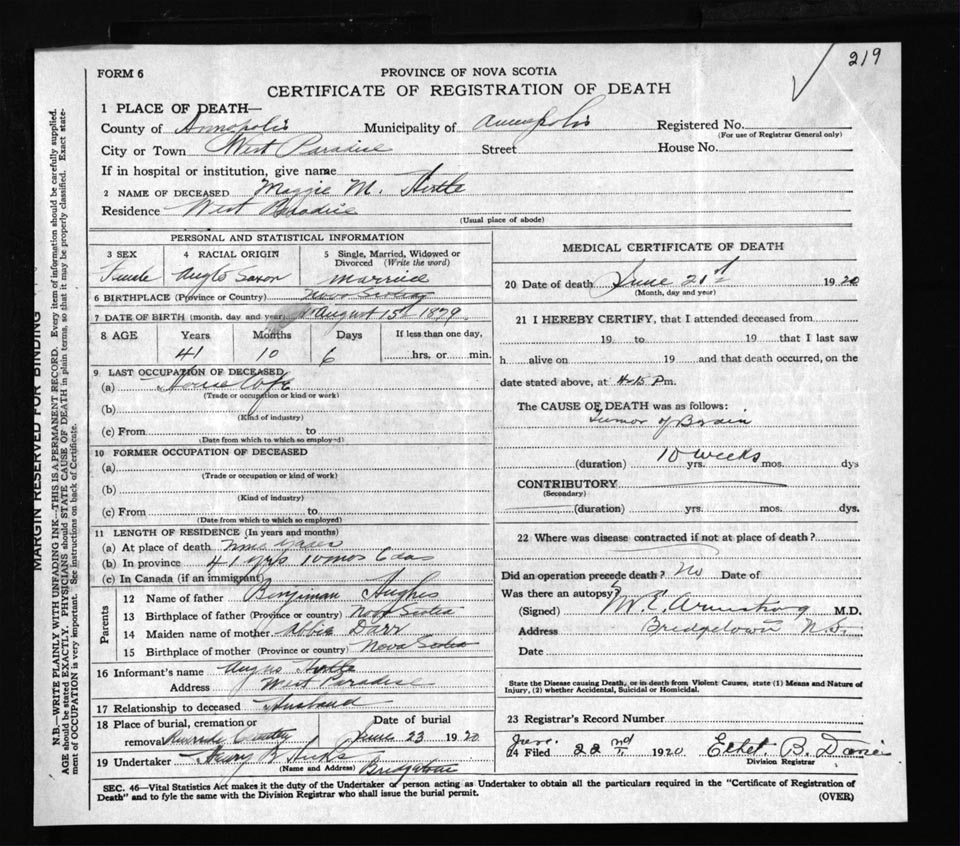 219
FORM 6
PROVINCE OF NOVA SCOTIA
CERTIFICATE OF REGISTRATION OF DEATH
1 PLACE OF DEATH—
County of Annapolis Municipality of Annapolis Registered No.
(For use of Registrar General only)
City or Town West Paradise Street House No.
If in hospital or institution, give name
2 NAME OF DECEASED Maggie M. Hirtle
Residence West Paradise
(Usual place of abode)
PERSONAL AND STATISTICAL INFORMATION
3 SEX 4 RACIAL ORIGIN 5 Single, Married, Widowed or
Divorced (Write the word)
Female Anglo Saxon married
6 BIRTHPLACE (Province or Country) Nova Scotia
7 DATE OF BIRTH (month, day and year) August 15th 1879
8 AGE Years Months Days If less than one day,
41 10 6 hrs. or min.
9 LAST OCCUPATION OF DECEASED
(a) House
(Trade or occupation or kind of work)
(b)
(Kind of industry)
(c) From to
(Date from which to which so employed)
10 FORMER OCCUPATION OF DECEASED
(a)
(Trade or occupation or kind of work)
(b)
(Kind of industry)
(c) From to
(Date from which to which so employed)
11 LENGTH OF RESIDENCE (In years and months)
(a) At place of death nine years
(b) In province 41 yrs 10 mos 6 das
(c) In Canada (if an immigrant)
Parents
12 Name of father Benjiman Hughes
13 Birthplace of father (Province or country) Nova Scotia
14 Maiden name of mother Abbie Darr
15 Birthplace of mother (Province or country) Nova Scotia
16 Informant's name Angus Hirtle
Address West Paradise
17 Relationship to deceased Husband
18 Place of burial, cremation or Date of burial
removal June 23 1920
19 Undertaker B. Hicks
(Name and Address) Bridgetown
MEDICAL CERTIFICATE OF DEATH
20 Date of death June 21st 1920
(Month, day and year)
21 I HEREBY CERTIFY, that I attended deceased from
19 to 19 that I last saw
h alive on 19 and that death occurred, on the
date stated above, at 4-15 Pm.
The CAUSE OF DEATH was as follows:
Tumor of Brain
10 weeks
(duration) yrs. mos. dys
CONTRIBUTORY
(Secondary)
(duration) yrs. mos. dys.
22 Where was disease contracted if not at place of death?
Did an operation precede death? No Date of
Was there an autopsy?
(Signed) M. E. Armstrong M.D.
Address Bridgetown N.S.
Date
State the Disease causing Death, or in death from Violent Causes, state (1) Means and Nature of
Injury, (2) whether Accidental, Suicidal or Homicidal.
23 Registrar's Record Number
24 Filed 22nd 1920 Ethel. B.
Division Registrar
SEC. 46—Vital Statistics Act makes it the duty of the Undertaker or person acting as Undertaker to obtain all the particulars required in the "Certificate of Registration of
Death" and to fyle the same with the Division Registrar who shall issue the burial permit.
(OVER)
MARGIN RESERVED FOR BINDING
N.B.—WRITE PLAINLY WITH UNFADING INK—THIS IS A PERMANENT RECORD. Every item of information should be carefully supplied.
AGE should be stated EXACTLY. PHYSICIANS should STATE CAUSE OF DEATH in plain terms, so that it may be properly classified. Exact state-
ment of OCCUPATION is very important. See instructions on back of Certificate.